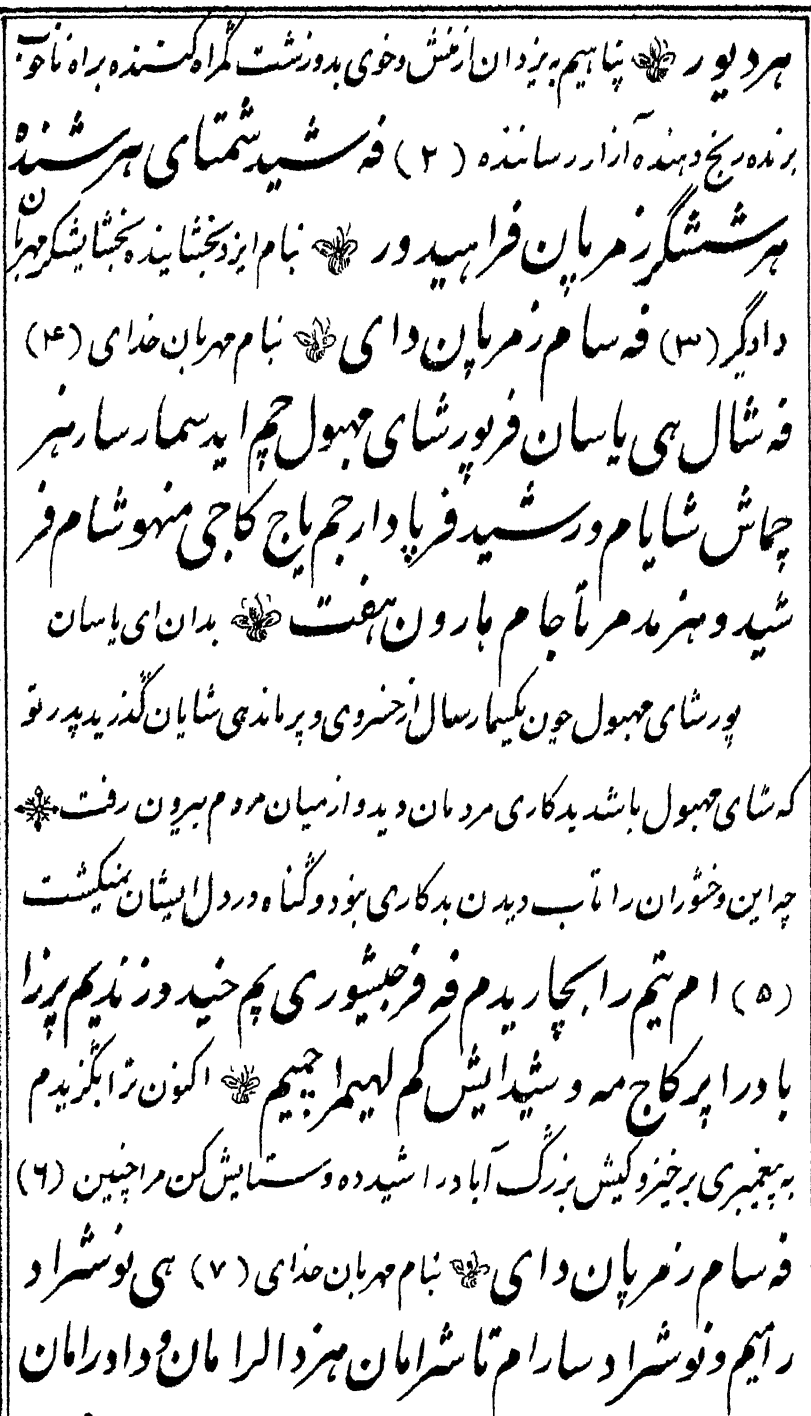 هر دیور پناهیم به یزدان از منش و خوی بد و زشت گمراه کننده براه ناخوب
برنده رنج دهنده آزار رساننده (۲) فه شید شمتای هر شنده
هر ششگر زمرپان فراهیدور بنام ایزد بخشاینده بخشایشگر مهربان
دادگر (۳) فه سام زمرپان دای بنام مهربان خدای (۴)
فه شال هی یاسان فرپور شای مهبول چم اید سمار سار هنر
چماش شایام ورشید فرپادار جم یاج کاجی منهوشام فر
شید و هنر مدمر تاجام هارون هفت بدان ای یاسان
پور شای مهبول چون یکسمار سال از خسروی و پرماندهی شایان گذرید پدر تو
که شای مهبول باشد بدکاری مردمان دید و از میان مردم بیرون رفت
چه این وخشوران را تاب دیدن بدکاری نبود و گناه در دل ایشان نمیگشت
(۵) ام یتم را بجاریدم فه فرجیشوری پم خید و زندیم پرزا
باد را پر کاج مه و شیدایش کم لهیمرا چمیم اکنون ترا بگزیدم
به پیغمبری برخیز و کیش بزرگ آباد را شید ده و ستایش کن مرا چنین (۶)
فه سام زمرپان دای بنام مهربان خدای (۷) هی نوشراد
رامیم و نوشراد سارام تاشرامان هزدالرامان و دادرامان